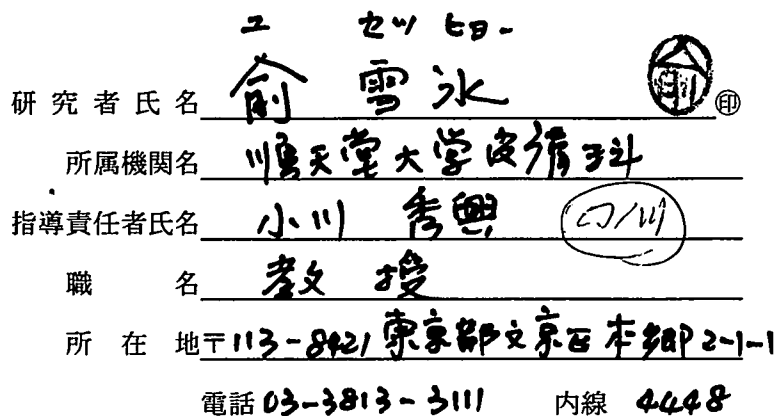 ユ セツ ヒョー
研究者氏名 俞 雪氷 俞 印
所属機関名 順天堂大学皮膚科
指導責任者氏名 小川 秀興 小川
職名 教授
所在地 〒113-8421 東京都文京区本郷2-1-1
電話 03-3813-3111 内線 4448